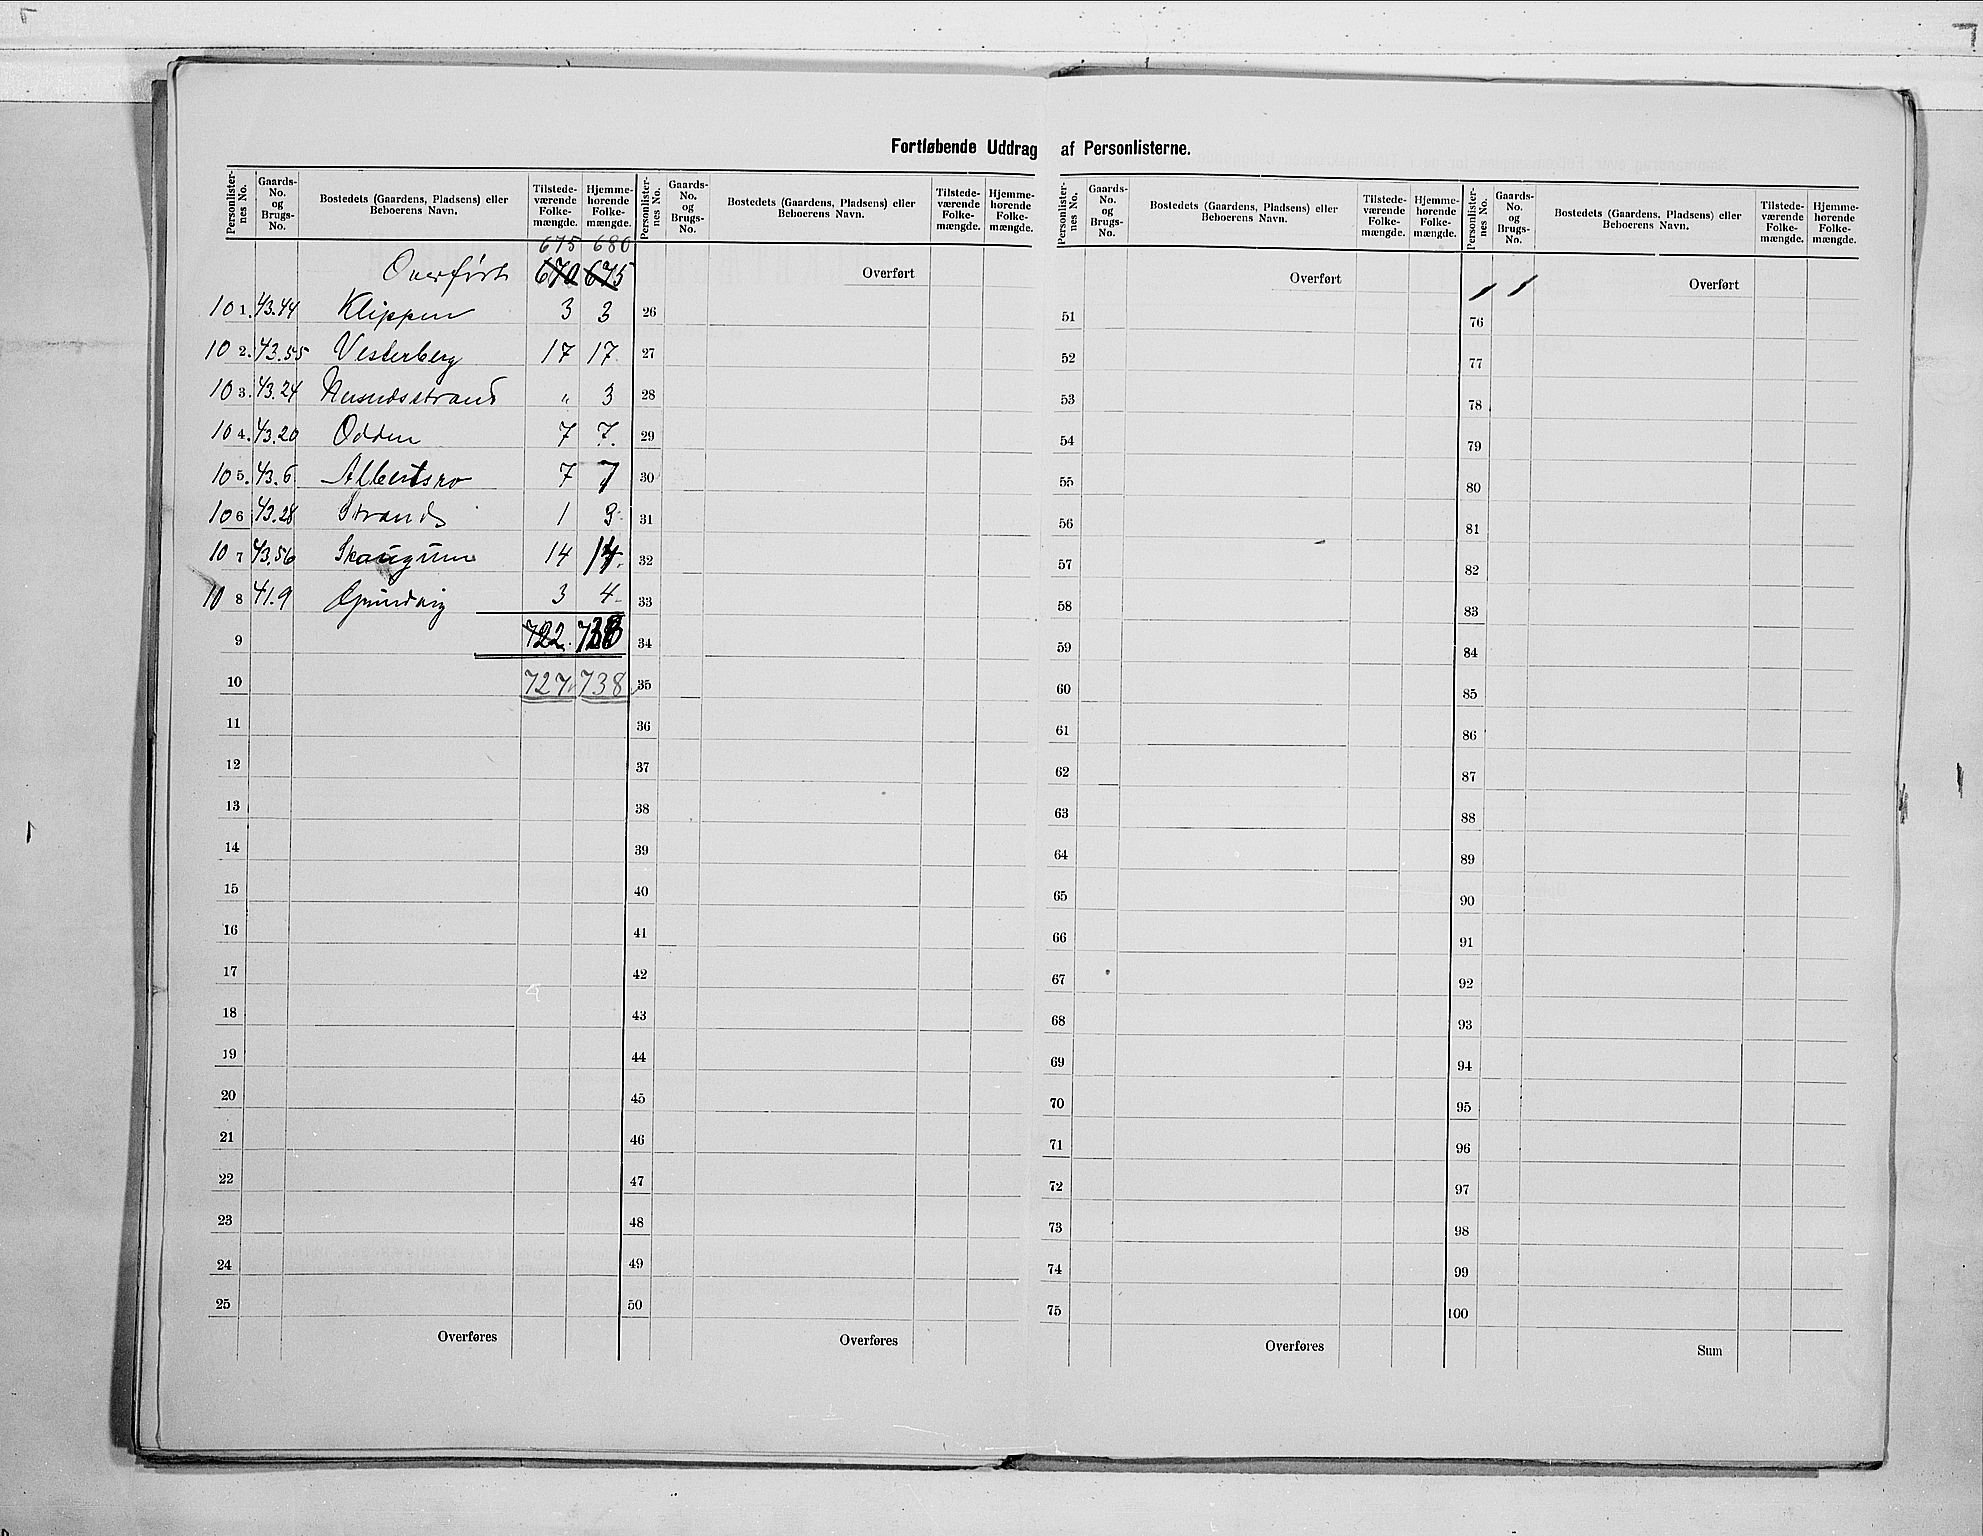 Fortløbende Uddrag af Personlisterne.
Personlister-nes No. Gaards-No. og Brugs-No. Bostedets (Gaardens, Pladsens) eller Beboerens Navn. Tilstede-værende Folke-mængde. Hjemme-hørende Folke-mængde.
675 680
Overført 670 675
101. 43.44 Klippen 3 3
102. 43.55 Vesterberg 17 17
103. 43.24 " 3
104. 43.20 Odden 7 7.
105. 43.6 Albertsro 7 7
106 43.28 Strand 1 3
107 43.56 Skaugum 14 14.
108 41.9 3 4
9 722. 738
10 727 738
11
12
13
14
15
16
17
18
19
20
21
22
23
24
25
Overføres
Personlister-nes No. Gaards-No. og Brugs-No. Bostedets (Gaardens, Pladsens) eller Beboerens Navn. Tilstede-værende Folke-mængde. Hjemme-hørende Folke-mængde.
Overført
26
27
28
29
30
31
32
33
34
35
36
37
38
39
40
41
42
43
44
45
46
47
48
49
50
Overføres
Personlister-nes No. Gaards-No. og Brugs-No. Bostedets (Gaardens, Pladsens) eller Beboerens Navn. Tilstede-værende Folke-mængde. Hjemme-hørende Folke-mængde.
Overført
51
52
53
54
55
56
57
58
59
60
61
62
63
64
65
66
67
68
69
70
71
72
73
74
75
Overføres
Personlister-nes No. Gaards-No. og Brugs-No. Bostedets (Gaardens, Pladsens) eller Beboerens Navn. Tilstede-værende Folke-mængde. Hjemme-hørende Folke-mængde.
Overført
76
77
78
79
80
81
82
83
84
85
86
87
88
89
90
91
92
93
94
95
96
97
98
99
100
Sum